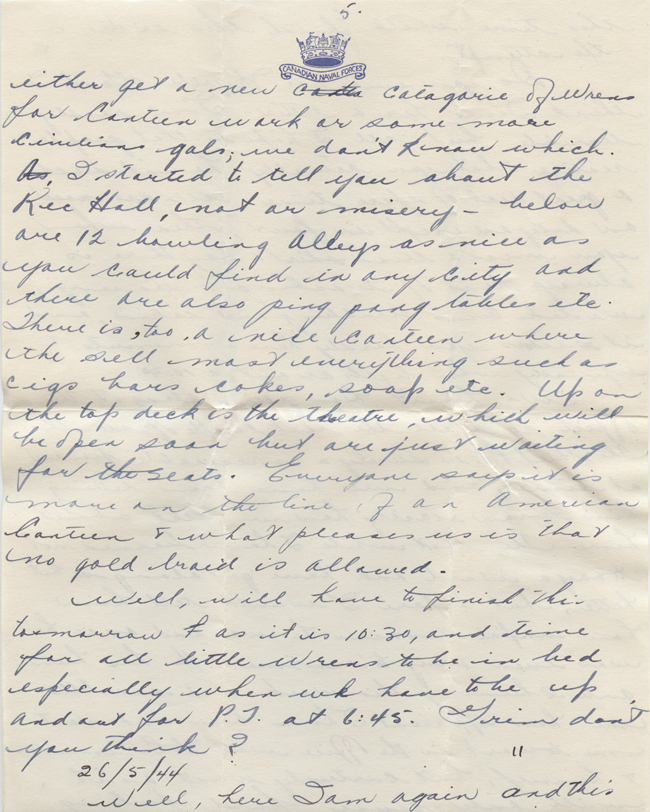 5.
CANADIAN NAVAL FORCES
either get a new cata catagorie of Wrens
for Canteen work or some more
Civilians gals; we don't know which.
As, I started to tell you about the
Rec Hall, not or misery – below
are 12 bowling Alleys as nice as
you could find in any City and
there are also ping pong tables etc.
There is, too, a nice Canteen where
the sell most everything such as
cigs bars cokes, soap etc. Up on
the top deck is the theatre, which will
be open soon but are just waiting
for the seats. Everyone says it is
more on the line of an American
Canteen & what pleases us is that
no gold braid is allowed.
Well, will have to finish this
tomorrow & as it is 10:30, and time
for all little Wrens to be in bed
especially when we have to be up
and out for P.T. at 6:45. Grim don't
you think?
26/5/44 "
Well, here I am again and this